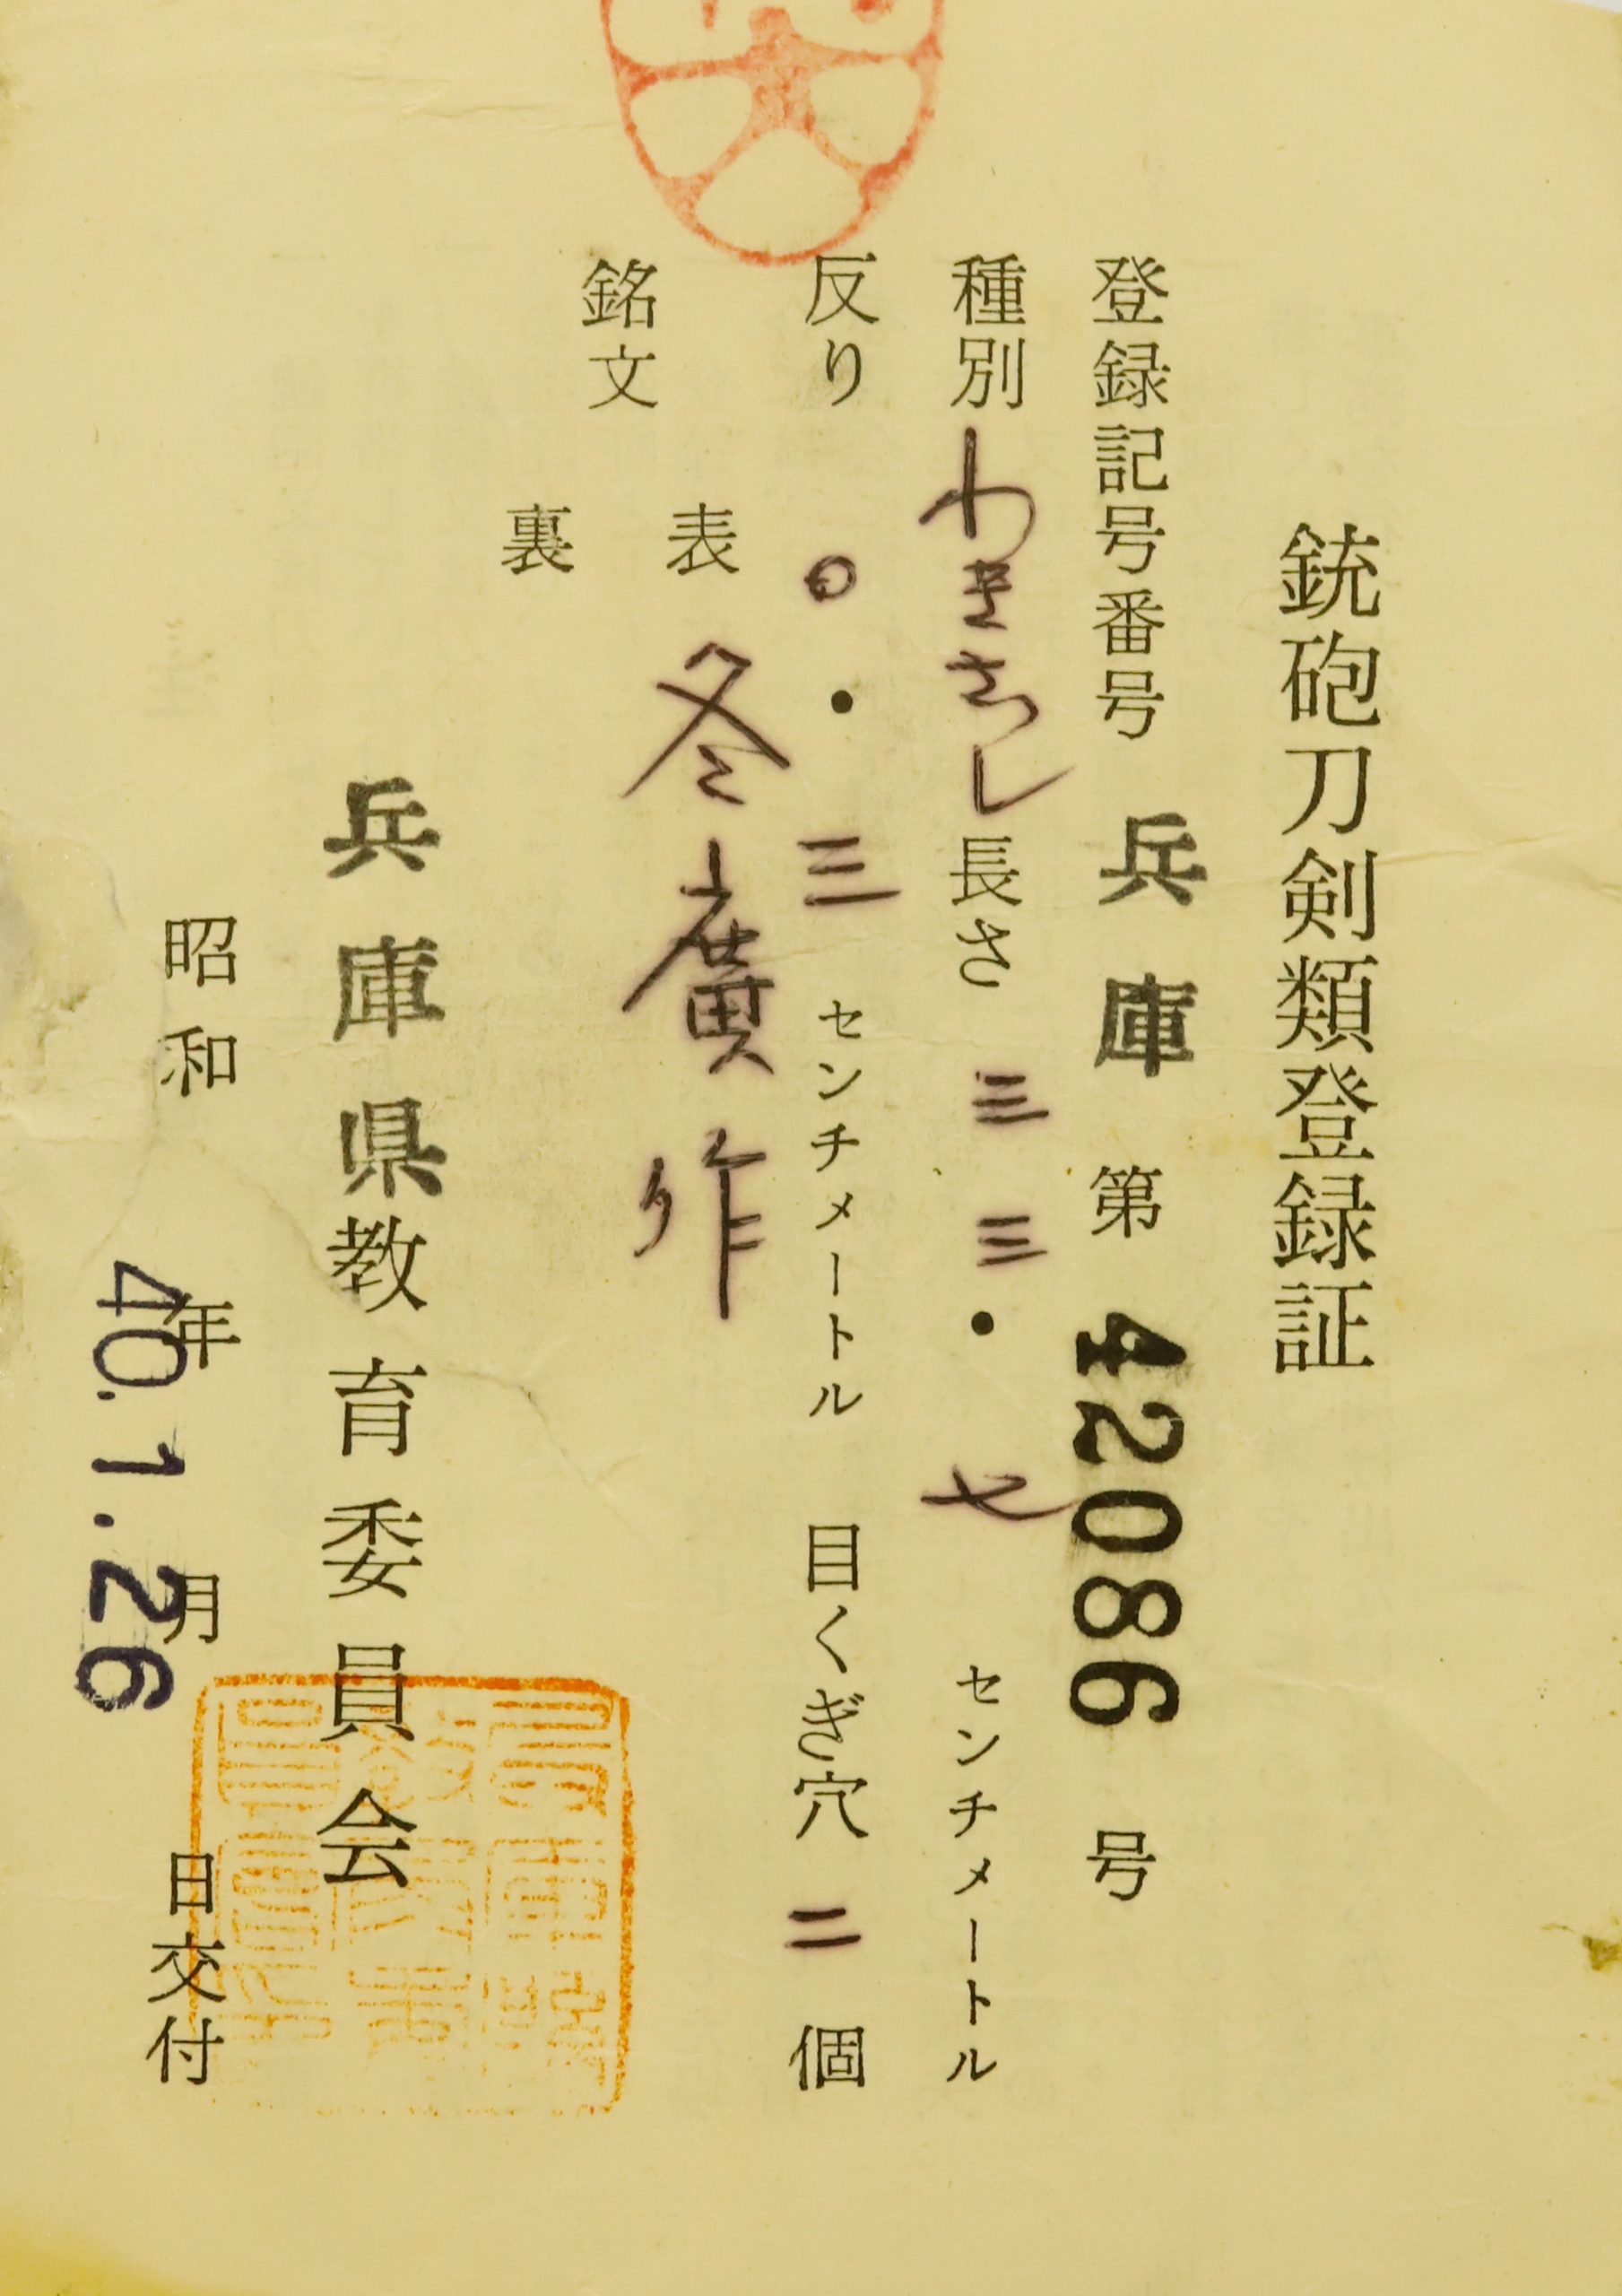 銃砲刀剣類登録証
登録記号番号 兵庫 第 42086 号
種別 わきざし 長さ 三三・七 センチメートル
反り 〇・三 センチメートル 目くぎ穴 二 個
銘文
表 冬廣作
裏
兵庫県教育委員会
昭和 年 月 日交付
40.1.26